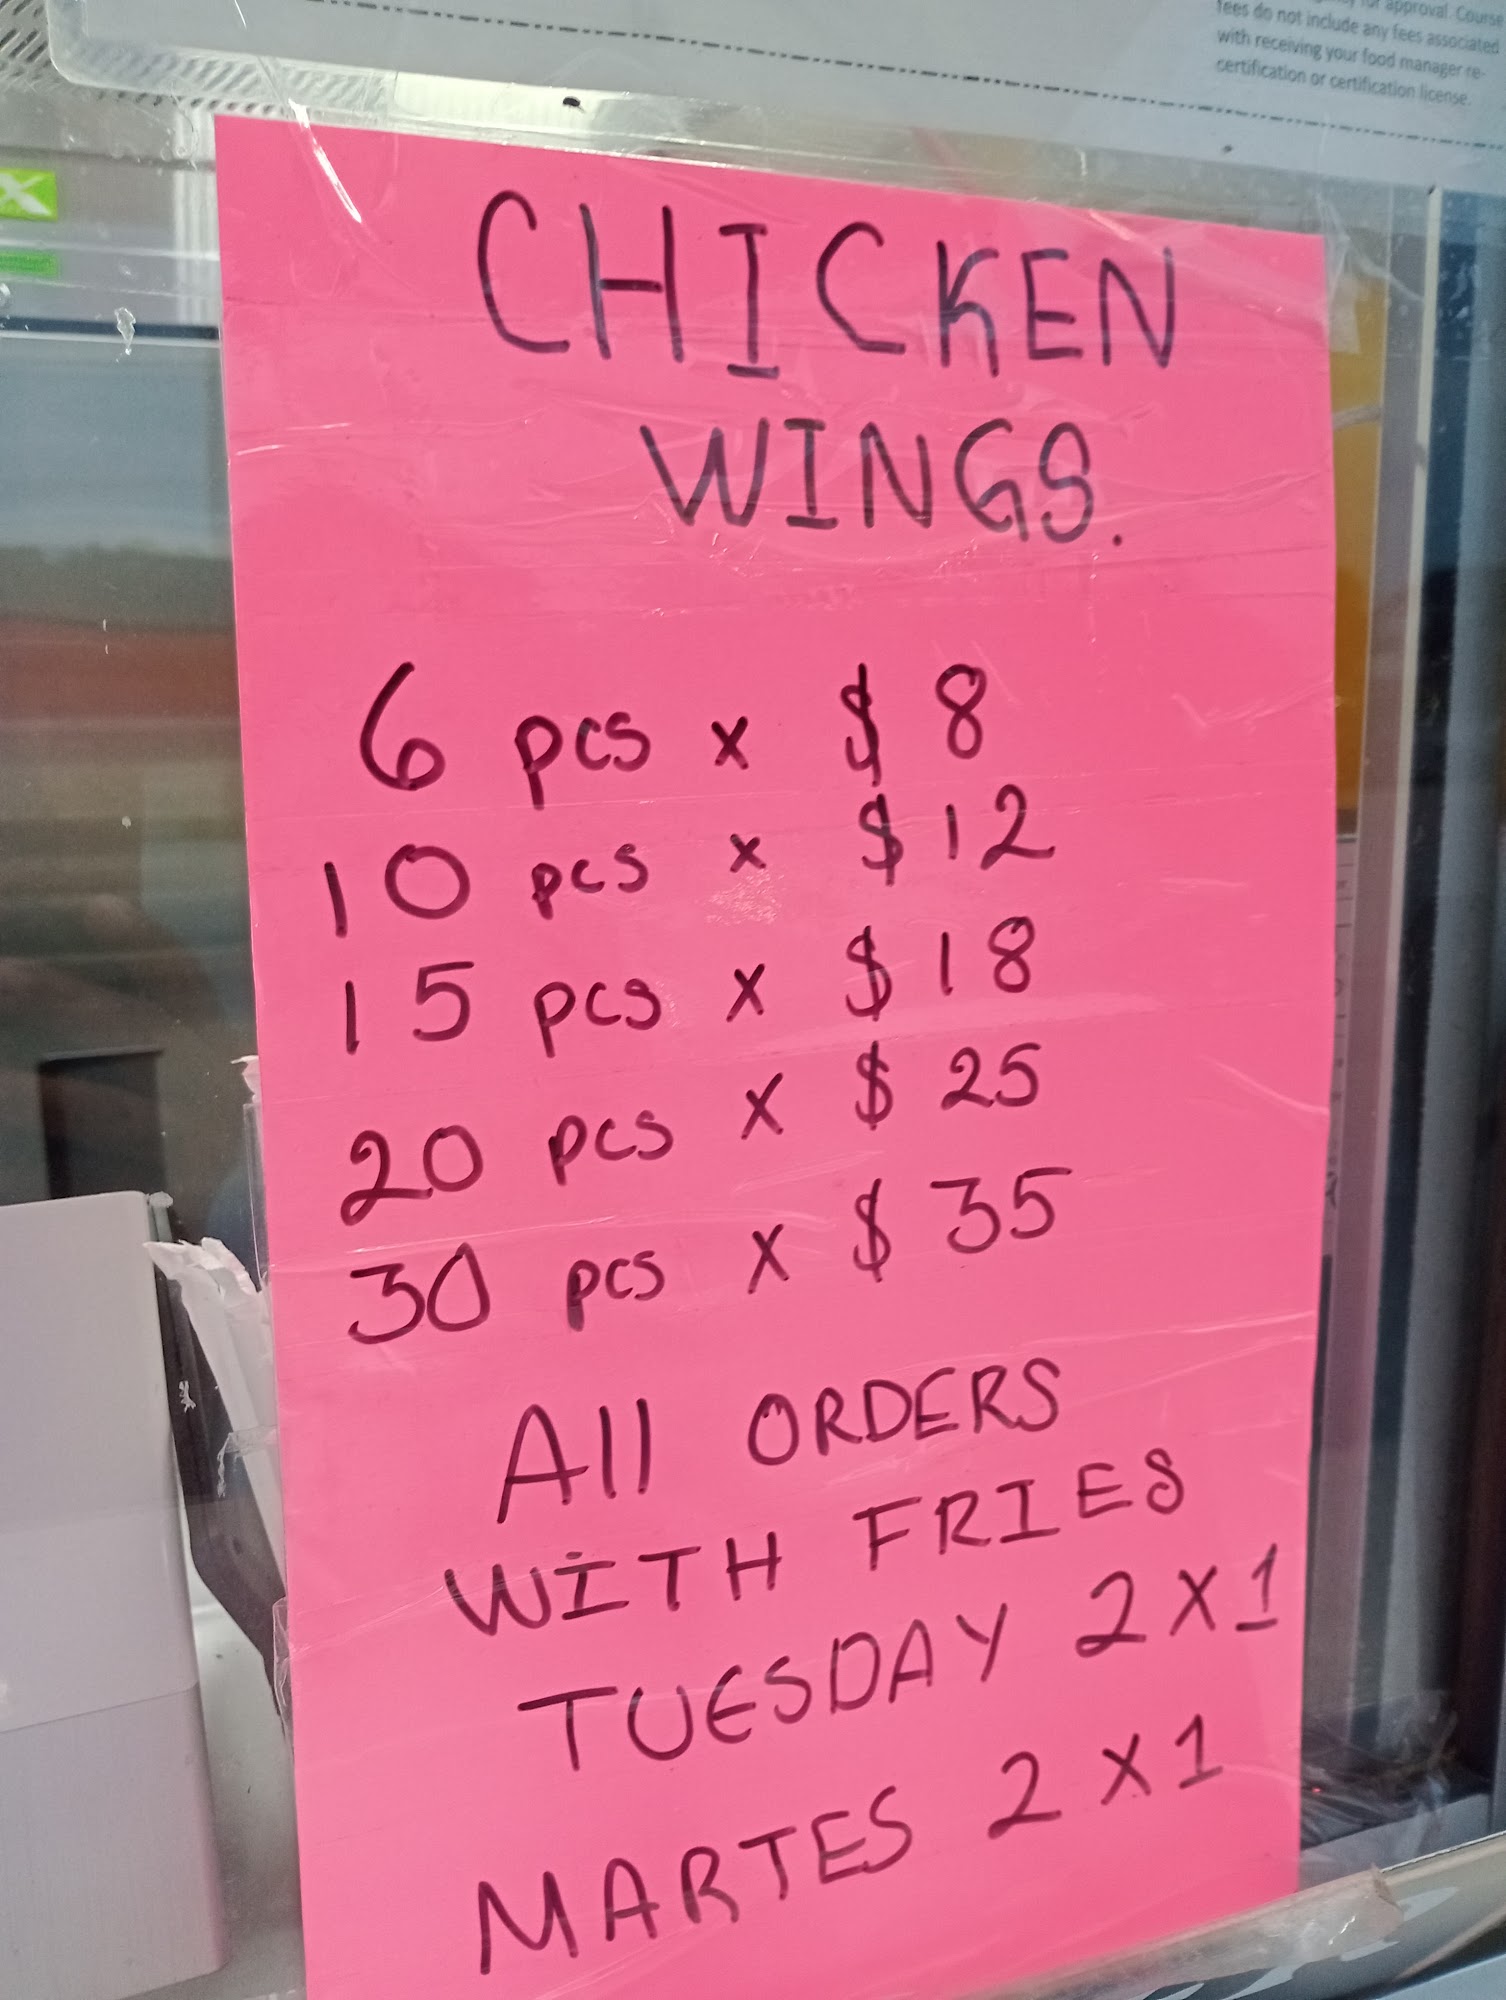 for approval. Course
fees do not include any fees associated
with receiving your food manager re-
certification or certification license.
CHICKEN
WINGS.
6 pcs x $ 8
10 pcs x $ 12
15 pcs x $ 18
20 pcs x $ 25
30 pcs x $ 35
All ORDERS
WITH FRIES
TUESDAY 2 X 1
MARTES 2 X 1